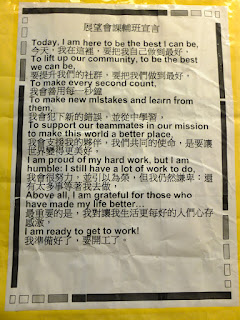 展望會課輔班宣言
Today, I am here to be the best I can be,
今天，我在這裡，要把我自己做到最好，
To lift up our community, to be the best
we can be,
要提升我們的社群，要把我們做到最好，
To make every second count,
我會善用每一秒鐘
To make new mistakes and learn from
them,
我會犯下新的錯誤，並從中學習，
To support our teammates in our mission
to make this world a better place,
我會支援我的夥伴，我們共同的使命，是要讓
世界變得更美好，
I am proud of my hard work, but I am
humble: I still have a lot of work to do,
我會很努力，並引以為榮，但我仍然謙卑：還
有太多事等著我去做，
Above all, I am grateful for those who
have made my life better…
最重要的是，我對讓我生活更每好的人們心存
感激，
I am ready to get to work!
我準備好了，要開工了。